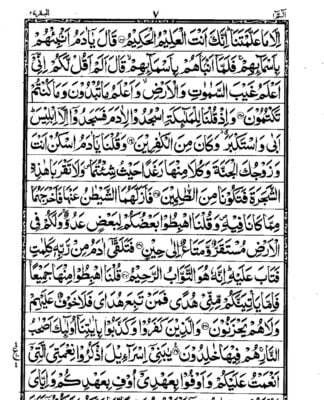 البقرة ٢ ٧ الٓمّٓ ١
اِلَّا مَا عَلَّمْتَنَا ۭ اِنَّكَ اَنْتَ الْعَلِيْمُ الْحَكِيْمُ قَالَ يٰٓاٰدَمُ اَنْۢبِئْهُمْ
بِاَسْمَآئِهِمْ ۚ فَلَمَّآ اَنْۢبَاَهُمْ بِاَسْمَآئِهِمْ ۙ قَالَ اَلَمْ اَقُلْ لَّكُمْ اِنِّىْٓ
اَعْلَمُ غَيْبَ السَّمٰوٰتِ وَالْاَرْضِ ۙ وَاَعْلَمُ مَا تُبْدُوْنَ وَمَا كُنْتُمْ
تَكْتُمُوْنَ وَاِذْ قُلْنَا لِلْمَلٰٓئِكَةِ اسْجُدُوْا لِاٰدَمَ فَسَجَدُوْٓا اِلَّآ اِبْلِيْسَ ۭ
اَبٰى وَاسْتَكْبَرَ ۤ وَكَانَ مِنَ الْكٰفِرِيْنَ وَقُلْنَا يٰٓاٰدَمُ اسْكُنْ اَنْتَ
وَزَوْجُكَ الْجَنَّةَ وَكُلَا مِنْهَا رَغَدًا حَيْثُ شِئْتُمَا ۠ وَلَا تَقْرَبَا هٰذِهِ
الشَّجَرَةَ فَتَكُوْنَا مِنَ الظّٰلِمِيْنَ فَاَزَلَّهُمَا الشَّيْطٰنُ عَنْهَا فَاَخْرَجَهُمَا
مِمَّا كَانَا فِيْهِ ۠ وَقُلْنَا اهْبِطُوْا بَعْضُكُمْ لِبَعْضٍ عَدُوٌّ ۚ وَلَكُمْ فِى
الْاَرْضِ مُسْتَقَرٌّ وَّمَتَاعٌ اِلٰى حِيْنٍ فَتَلَقّٰٓى اٰدَمُ مِنْ رَّبِّهٖ كَلِمٰتٍ
فَتَابَ عَلَيْهِ ۭ اِنَّهٗ هُوَ التَّوَّابُ الرَّحِيْمُ قُلْنَا اهْبِطُوْا مِنْهَا جَمِيْعًا ۚ
فَاِمَّا يَاْتِيَنَّكُمْ مِّنِّىْ هُدًى فَمَنْ تَبِعَ هُدَاىَ فَلَا خَوْفٌ عَلَيْهِمْ
وَلَا هُمْ يَحْزَنُوْنَ وَالَّذِيْنَ كَفَرُوْا وَكَذَّبُوْا بِاٰيٰتِنَآ اُولٰٓئِكَ اَصْحٰبُ
النَّارِ ۚ هُمْ فِيْهَا خٰلِدُوْنَ يٰبَنِىْٓ اِسْرَآءِيْلَ اذْكُرُوْا نِعْمَتِىَ الَّتِىْٓ
اَنْعَمْتُ عَلَيْكُمْ وَاَوْفُوْا بِعَهْدِىْٓ اُوْفِ بِعَهْدِكُمْ ۚ وَاِيَّاىَ